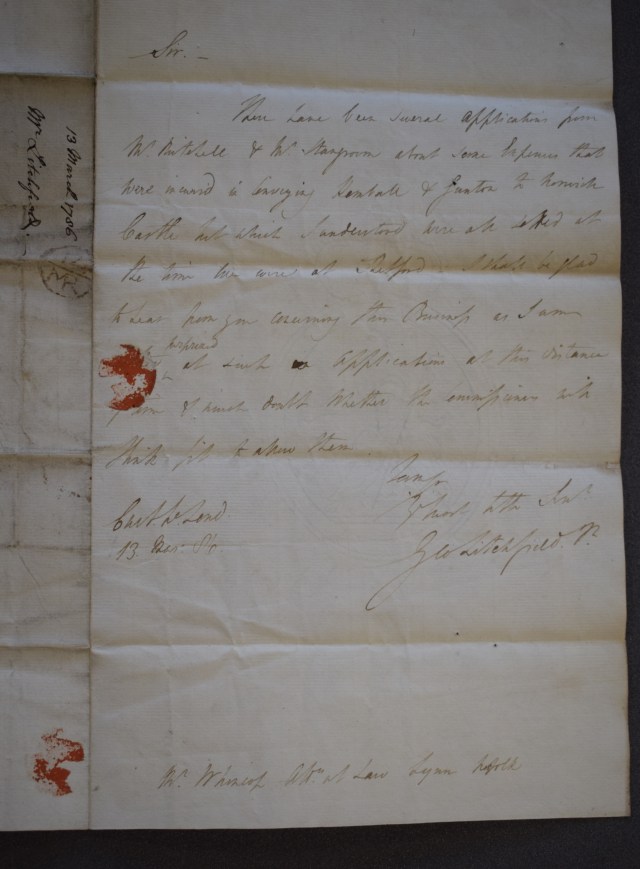 Sir. –
There have been several applications from
Mr. Mitchell & Mr. about some Expences that
were incurred in Conveying Kemball & Gunton to Norwich
Castle but which I understood were all settled at
the time we were at Thetford. I shall be glad
to hear from you concerning this Business as I am
surprised
at such applications at this distance
& must doubt whether the commissioners will
think fit to allow them.
I am Sr.
Yr. most
Geo Litchfield. Jr.
13. 86
Mr. Whincop Atty. at Law Lynn Norfolk
13 March 1786
Mr Litchfield